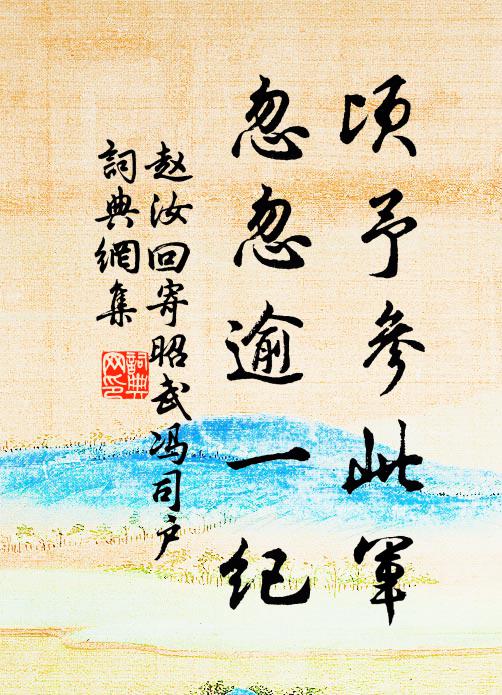 頃予參此軍
忽忽逾一紀
赵汝回寄昭武冯司户
詞典網集
詞典网印